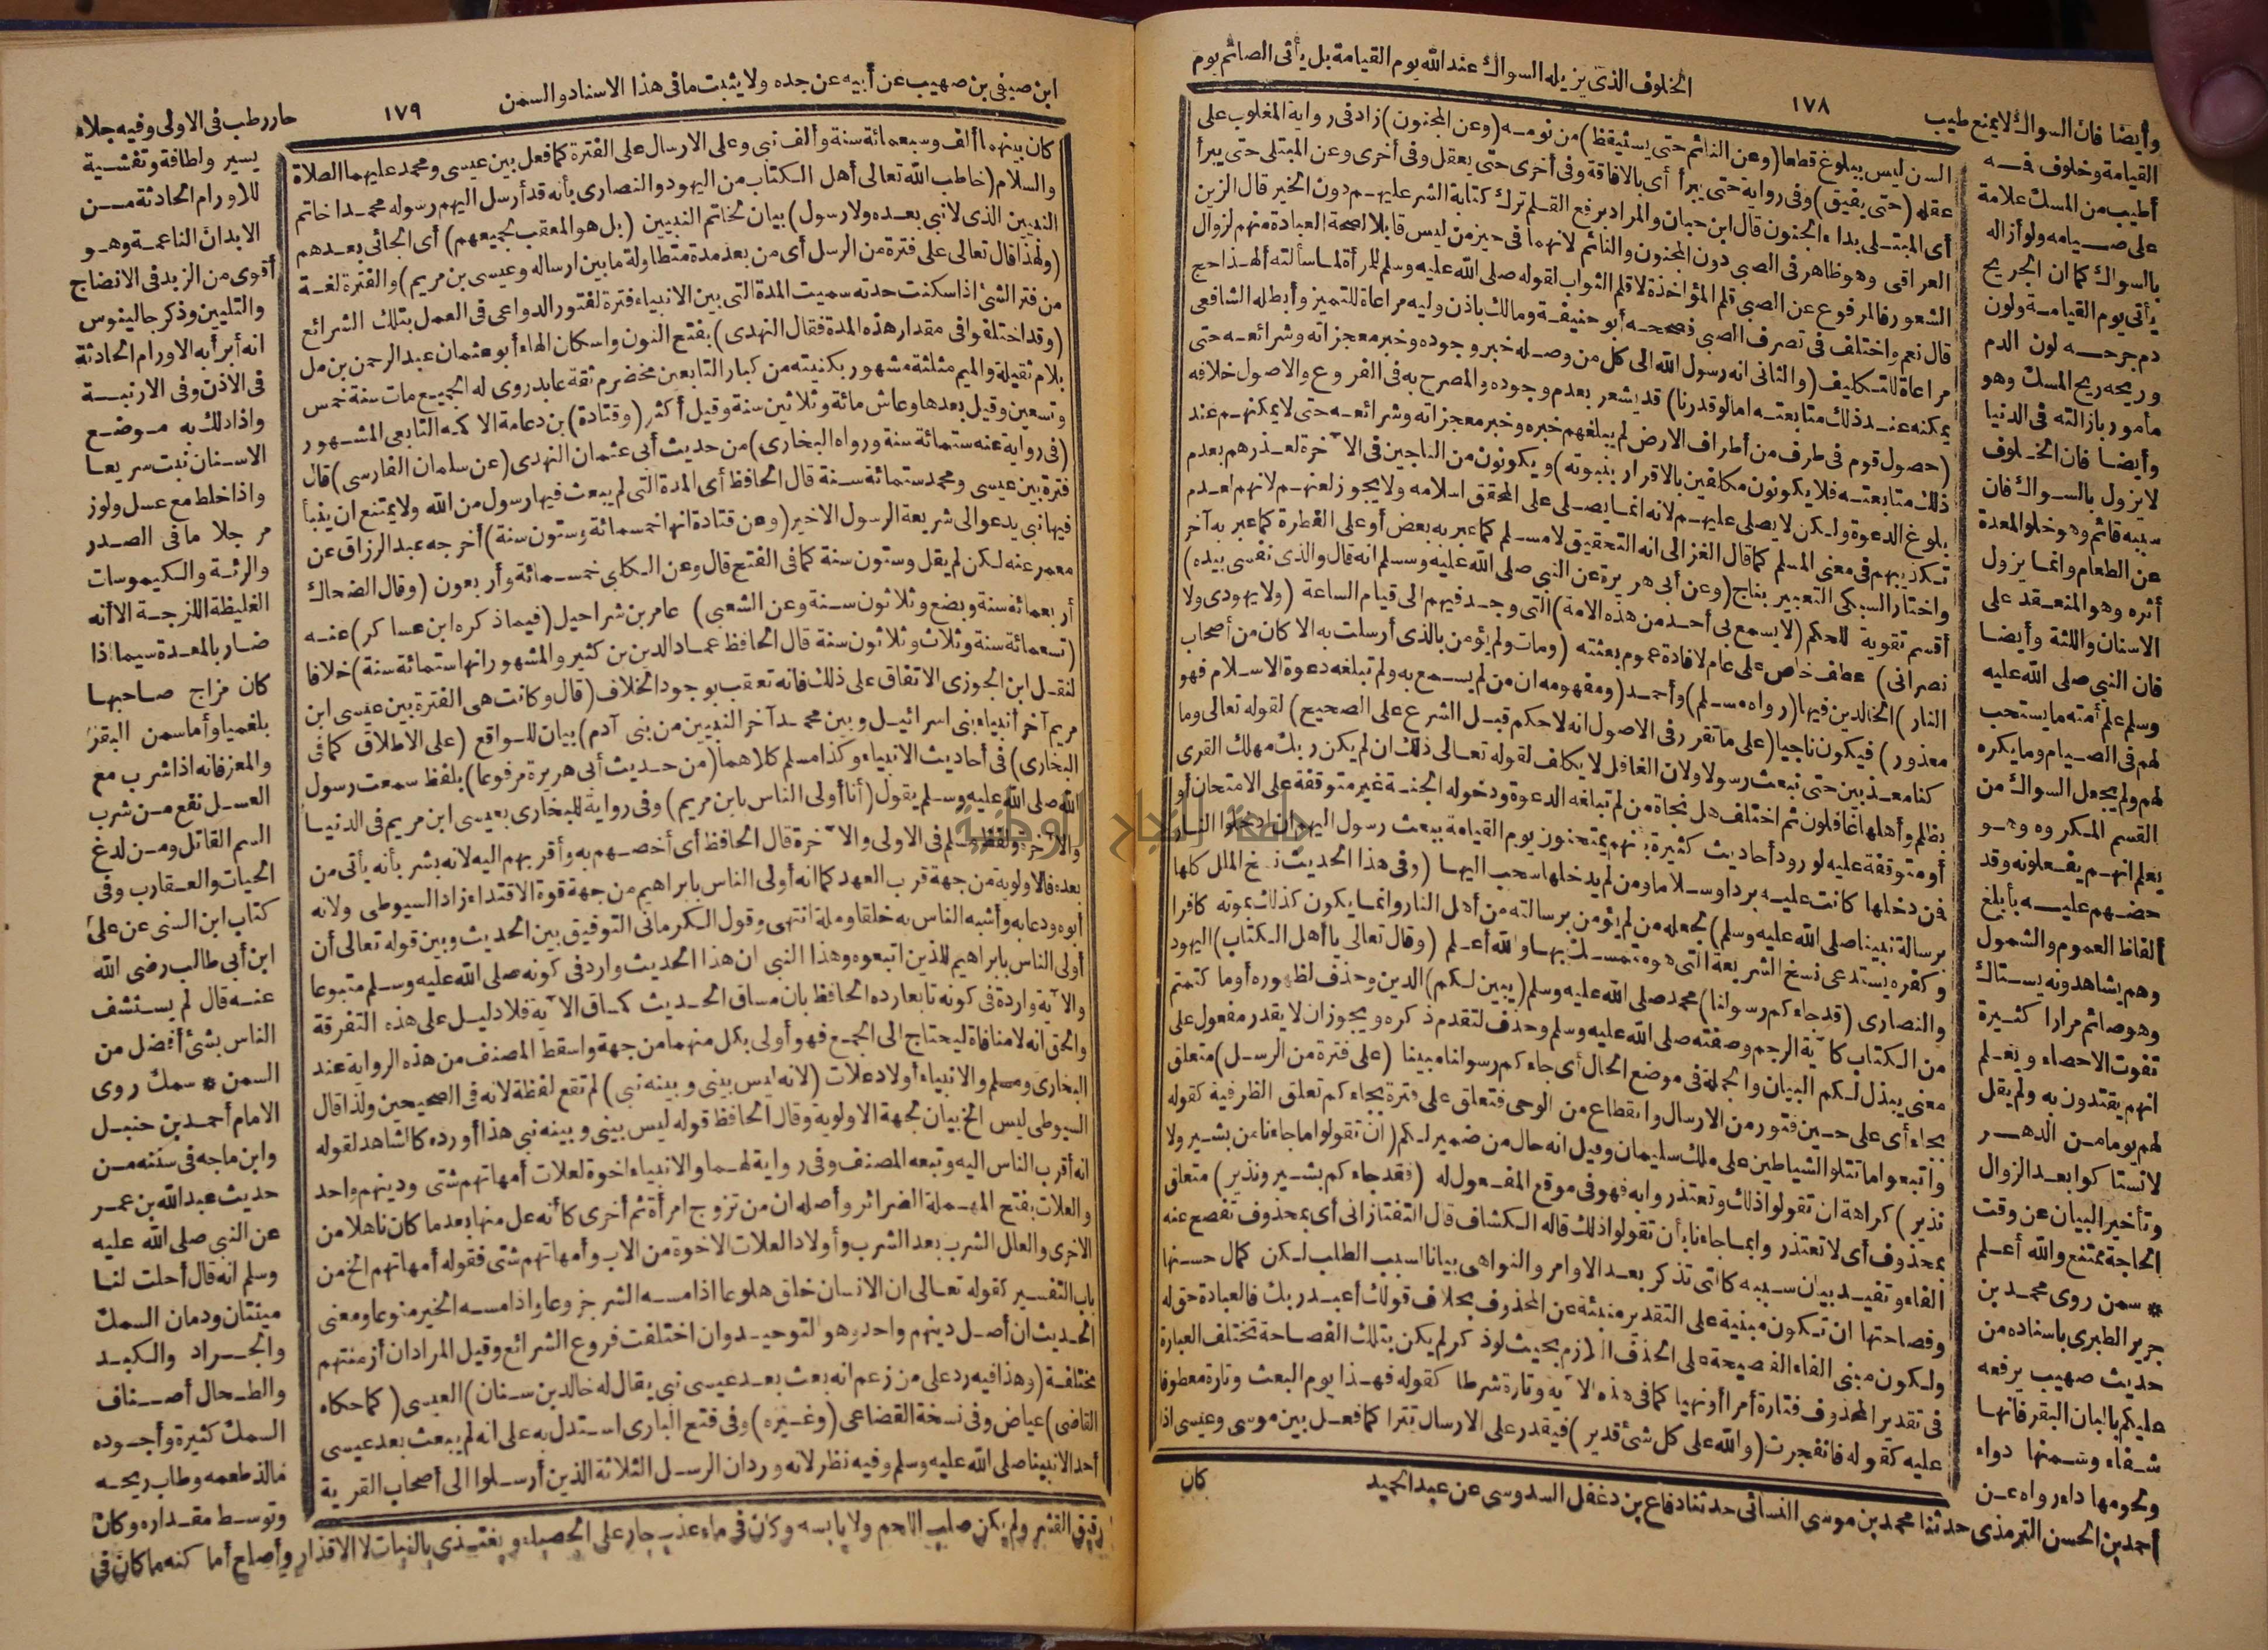 الخلوف الذى يزيله السواك عند الله يوم القيامة بل يأتى الصائم يوم
١٧٨
وأيضا فان السواك لا يمنع طيب
القيامة وخلوف فـه
أطيب من المسك علامة
على صيامه ولو أزاله
بالسواك كما ان الجريح
يأتى يوم القيامة ولون
دم جرحه لون الدم
وريحه ريح المسك وهو
مأمور بازالته فى الدنيا
وأيضا فان الخلوف
لا يزول بالسواك فان
سببه قائم وهو خلو المعدة
عن الطعام وانما يزول
أثره وهو المنعقد على
الاسنان واللثة وأيضا
فان النبي صلى الله عليه
وسلم علم أمته ما يستحب
لهم فى الصيام وما يكره
لهم ولم يجعل السواك من
القسم المكروه وهو
يعلم انهم يفعلونه وقد
حضهم عليه بأبلغ
ألفاظ العموم والشمول
وهم يشاهدونه يستاك
وهو صائم مرارا كثيرة
تفوت الاحصاء ويعلم
انهم يقتدون به ولم يقل
لهم يوما من الدهر
لا تستاكوا بعد الزوال
وتأخير البيان عن وقت
الحاجة ممتنع والله أعلم
* سمن روى محمد بن
جرير الطبرى باسناده من
حديث صهيب يرفعه
عليكم بالبان البقر فانها
شفاء وسمنها دواء
ولحومها داء رواه عن
أحمد بن الحسن الترمذى حدثنا محمد بن موسى النسائى حدثنا دفاع بن دغفل السدوسى عن عبد الحميد
السن ليس ببلوغ قطعا (وعن النائم حتى يستيقظ) من نومه (وعن المجنون) زاد فى رواية المغلوب على
عقله (حتى يفيق) وفى رواية حتى يبرأ أى بالافاقة وفى أخرى حتى يعقل وفى أخرى وعن المبتلى حتى يبرأ
أى المبتلى بداء الجنون قال ابن حبان والمراد برفع القلم ترك كتابة الشر عليهم دون الخير قال الزين
العراقى وهو ظاهر فى الصبى دون المجنون والنائم لانهما فى حيز من ليس قابلا لصحة العبادة منهم لزوال
الشعور فالمرفوع عن الصبى قلم المؤاخذة لا قلم الثواب لقوله صلى الله عليه وسلم للمرأة لما سألته ألهذا حج
قال نعم واختلف فى تصرف الصبى فصححه أبو حنيفة ومالك باذن وليه مراعاة للتمييز وأبطله الشافعى
مراعاة للتكليف (والثانى انه رسول الله الى كل من وصله خبر وجوده وخبر معجزاته وشرائعه حتى
يمكنه عند ذلك متابعته امالو قدرنا) قد يشعر بعدم وجوده والمصرح به فى الفروع والاصول خلافه
(حصول قوم فى طرف من أطراف الارض لم يبلغهم خبره وخبر معجزاته وشرائعه حتى لا يمكنهم عند
ذلك متابعته فلا يكونون مكلفين بالاقرار بنبوته) ويكونون من الناجين فى الآخرة لعذرهم بعدم
بلوغ الدعوة ولكن لا يصلى عليهم لانه انما يصلى على المحقق اسلامه ولا يجوز لعنهم لانهم لعدم
تكذيبهم فى معنى المسلم كما قال الغزالى انه التحقيق لا مسلم كما عبر به بعض أو على الفطرة كما عبر به آخر
واختار السبكى التعبير بناج (وعن أبى هريرة عن النبى صلى الله عليه وسلم انه قال والذى نفسى بيده)
أقسم تقوية للحكم (لا يسمع بى أحد من هذه الامة) التى وجد فيهم الى قيام الساعة (ولا يهودى ولا
نصرانى) عطف خاص على عام لافادة عموم بعثته (ومات ولم يؤمن بالذى أرسلت به الا كان من أصحاب
النار) الخالدين فيها (رواه مسلم) وأحمد (ومفهومه ان من لم يسمع به ولم تبلغه دعوة الاسلام فهو
معذور) فيكون ناجيا (على ما تقرر فى الاصول انه لا حكم قبل الشرع على الصحيح) لقوله تعالى وما
كنا معذبين حتى نبعث رسولا ولان الغافل لا يكلف لقوله تعالى ذلك ان لم يكن ربك مهلك القرى
بظلم وأهلها غافلون ثم اختلف هل نجاة من لم تبلغه الدعوة ودخوله الجنة غير متوقفة على الامتحان أو
أو متوقفة عليه لورود أحاديث كثيرة بانهم يمتحنون يوم القيامة ببعث رسول اليهم ان ادخلوا النار
فمن دخلها كانت عليه بردا وسلاما ومن لم يدخلها سحب اليها (وفى هذا الحديث نسخ الملل كلها
برسالة نبينا صلى الله عليه وسلم) لجعله من لم يؤمن برسالته من أهل النار وانما يكون كذلك بموته كافرا
وكفره يستدعى نسخ الشريعة التى هو متمسك بها والله أعلم (وقال تعالى يا أهل الكتاب) اليهود
والنصارى (قد جاءكم رسولنا) محمد صلى الله عليه وسلم (يبين لكم) الدين وحذف لظهوره أو ما كتمتم
من الكتاب كآية الرجم وصفته صلى الله عليه وسلم وحذف لتقدم ذكره ويجوز ان لا يقدر مفعول على
معنى يبذل لكم البيان والجملة فى موضع الحال أى جاءكم رسولنا مبينا (على فترة من الرسل) متعلق
بجاء أى على حين فتور من الارسال وانقطاع من الوحى فتتعلق على فترة بجاءكم تعلق الظرفية كقوله
واتبعوا ما تتلو الشياطين على ملك سليمان وقيل انه حال من ضمير لكم (ان تقولوا ما جاءنا من بشير ولا
نذير) كراهة ان تقولوا ذلك وتعتذروا به فهو فى موقع المفعول له (فقد جاءكم بشير ونذير) متعلق
بمحذوف أى لا تعتذروا بما جاءنا بأن تقولوا ذلك قاله الكشاف قال التفتازانى أى بمحذوف تفصح عنه
الفاء وتفيد بيان سببه كالتى تذكر بعد الاوامر والنواهى بيانا لسبب الطلب لكن كمال حسنها
وفصاحتها ان تكون مبنية على التقدير منبئة عن المحذوف بخلاف قولك أعبد ربك فالعبادة حق له
ولكون مبنى الفاء الفصيحة على الحذف اللازم بحيث لو ذكر لم يكن بتلك الفصاحة تختلف العبارة
فى تقدير المحذوف فتارة أمرا أو نهيا كما فى هذه الآية وتارة شرطا كقوله فهذا يوم البعث وتارة معطوفا
عليه كقوله فانفجرت (والله على كل شئ قدير) فيقدر على الارسال تترا كما فعل بين موسى وعيسى اذ
كان
ابن صيفى بن صهيب عن أبيه عن جده ولا يثبت ما فى هذا الاسناد والسمن
١٧٩
حار رطب فى الاولى وفيه جلاء
يسير ولطافة وتفشية
للاورام الحادثة من
الابدان الناعمة وهو
أقوى من الزبد فى الانضاج
والتليين وذكر جالينوس
انه أبرأ به الاورام الحادثة
فى الاذن وفى الارنبة
واذا دلك به موضع
الاسنان نبتت سريعا
واذا خلط مع عسل ولوز
مر جلا ما فى الصدر
والرئة والكيموسات
الغليظة اللزجة الا أنه
ضار بالمعدة سيما اذا
كان مزاج صاحبها
بلغميا وأما سمن البقر
والمعز فانه اذا شرب مع
العسل نفع من شرب
السم القاتل ومن لدغ
الحيات والعقارب وفى
كتاب ابن السنى عن على
ابن أبى طالب رضى الله
عنه قال لم يستشف
الناس بشئ أفضل من
السمن * سمك روى
الامام أحمد بن حنبل
وابن ماجه فى سننه من
حديث عبد الله بن عمر
عن النبى صلى الله عليه
وسلم انه قال أحلت لنا
ميتتان ودمان السمك
والجراد والكبد
والطحال أصناف
السمك كثيرة وأجوده
مالذ طعمه وطاب ريحه
وتوسط مقداره وكان
رقيق القشر ولم يكن صلب اللحم ولا يابسه وكان فى ماء عذب جار على الحصباء ويغتذى بالنبات لا الاقذار وأصلح أماكنه ما كان فى
كان بينهما ألف وسبعمائة سنة وألف نبى وعلى الارسال على الفترة كما فعل بين عيسى ومحمد عليهما الصلاة
والسلام (خاطب الله تعالى أهل الكتاب من اليهود والنصارى بأنه قد أرسل اليهم رسوله محمدا خاتم
النبيين الذى لا نبى بعده ولا رسول) بيان لخاتم النبيين (بل هو المعقب لجميعهم) أى الجائى بعدهم
(ولهذا قال تعالى على فترة من الرسل أى من بعد مدة متطاولة ما بين ارساله وعيسى بن مريم) والفترة لغة
من فتر الشئ اذا سكنت حدته سميت المدة التى بين الانبياء فترة لفتور الدواعى فى العمل بتلك الشرائع
(وقد اختلفوا فى مقدار هذه المدة فقال النهدى) بفتح النون واسكان الهاء أبو عثمان عبد الرحمن بن مل
بلام ثقيلة والميم مثلثة مشهور بكنيته من كبار التابعين مخضرم ثقة عابد روى له الجميع مات سنة خمس
وتسعين وقيل بعدها وعاش مائة وثلاثين سنة وقيل أكثر (وقتادة) بن دعامة الاكمه التابعى المشهور
(فى رواية عنه ستمائة سنة ورواه البخارى) من حديث أبى عثمان النهدى (عن سلمان الفارسى) قال
فترة بين عيسى ومحمد ستمائة سنة قال الحافظ أى المدة التى لم يبعث فيها رسول من الله ولا يمتنع ان ينبأ
فيها نبى يدعو الى شريعة الرسول الاخير (وعن قتادة انها خمسمائة وستون سنة) أخرجه عبد الرزاق عن
معمر عنه لكن لم يقل وستون سنة كما فى الفتح قال وعن الكلبى خمسمائة وأربعون (وقال الضحاك
أربعمائة سنة وبضع وثلاثون سنة وعن الشعبى) عامر بن شراحيل (فيما ذكره ابن عساكر) عنه
(تسعمائة سنة وثلاث وثلاثون سنة قال الحافظ عماد الدين بن كثير والمشهور انها ستمائة سنة) خلافا
لنقل ابن الجوزى الاتفاق على ذلك فانه تعقب بوجود الخلاف (قال وكانت هى الفترة بين عيسى ابن
مريم آخر أنبياء بنى اسرائيل وبين محمد آخر النبيين من بنى آدم) بيان للواقع (على الاطلاق كما فى
البخارى) فى أحاديث الانبياء وكذا مسلم كلاهما (من حديث أبى هريرة مرفوعا) بلفظ سمعت رسول
الله صلى الله عليه وسلم يقول (أنا أولى الناس بابن مريم) وفى رواية للبخارى بعيسى ابن مريم فى الدنيا
والآخرة ولفظ مسلم فى الاولى والآخرة قال الحافظ أى أخصهم به وأقربهم اليه لانه بشر بأنه يأتى من
بعده فالاولوية من جهة قرب العهد كما انه أولى الناس بابراهيم من جهة قوة الاقتداء زاد السيوطى ولانه
أبوه ودعا به وأشبه الناس به خلقا وملة انتهى وقول الكرمانى التوفيق بين الحديث وبين قوله تعالى أن
أولى الناس بابراهيم للذين اتبعوه وهذا النبى ان هذا الحديث وارد فى كونه صلى الله عليه وسلم متبوعا
والآية واردة فى كونه تابعا رده الحافظ بان مساق الحديث كمساق الآية فلا دليل على هذه التفرقة
والحق انه لا منافاة ليحتاج الى الجمع فهو أولى بكل منهما من جهة واسقط المصنف من هذه الرواية عند
البخارى ومسلم والانبياء أولاد علات (لانه ليس بينى وبينه نبى) لم تقع لفظة لانه فى الصحيحين ولذا قال
السيوطى ليس الخ بيان لجهة الاولوية وقال الحافظ قوله ليس بينى وبينه نبى هذا أورده كالشاهد لقوله
انه أقرب الناس اليه وتبعه المصنف وفى رواية لهما والانبياء اخوة لعلات أمهاتهم شتى ودينهم واحد
والعلات بفتح المهملة الضرائر وأصله ان من تزوج امرأة ثم أخرى كأنه عل منها بعد ما كان ناهلا من
الاخرى والعلل الشرب بعد الشرب وأولاد العلات الاخوة من الاب وأمهاتهم شتى فقوله أمهاتهم الخ من
باب التفسير كقوله تعالى ان الانسان خلق هلوعا اذا مسه الشر جزوعا واذا مسه الخير منوعا ومعنى
الحديث ان أصل دينهم واحد وهو التوحيد وان اختلفت فروع الشرائع وقيل المراد ان أزمنتهم
مختلفة (وهذا فيه رد على من زعم انه بعث بعد عيسى نبى يقال له خالد بن سنان) العبسى (كما حكاه
القاضى) عياض وفى نسخة القضاعى (وغيره) وفى فتح البارى استدل به على انه لم يبعث بعد عيسى
أحد الا نبينا صلى الله عليه وسلم وفيه نظر لانه ورد ان الرسل الثلاثة الذين أرسلوا الى أصحاب القرية
جامعة النجاح الوطنية